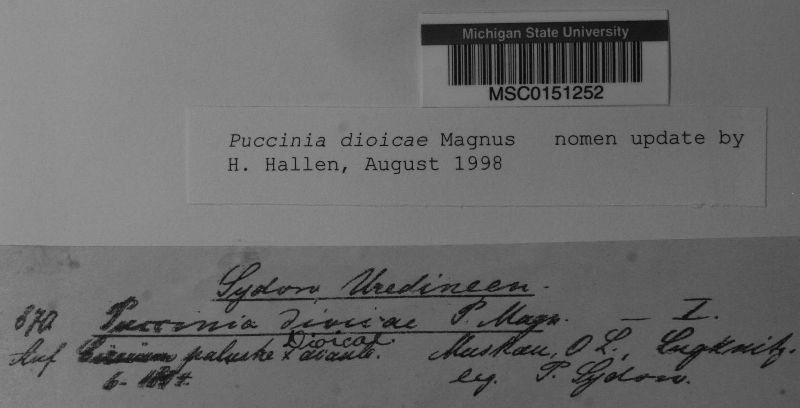 Michigan State University
MSC0151252
Puccinia dioicae Magnus nomen update by
H. Hallen, August 1998
Sydow Uredineen.
870 Puccinia dioicae P. Magn. — I.
Dioicae
Auf Cirsium palustre Muskau, O L., Lugknitz.
leg. P. Sydow.